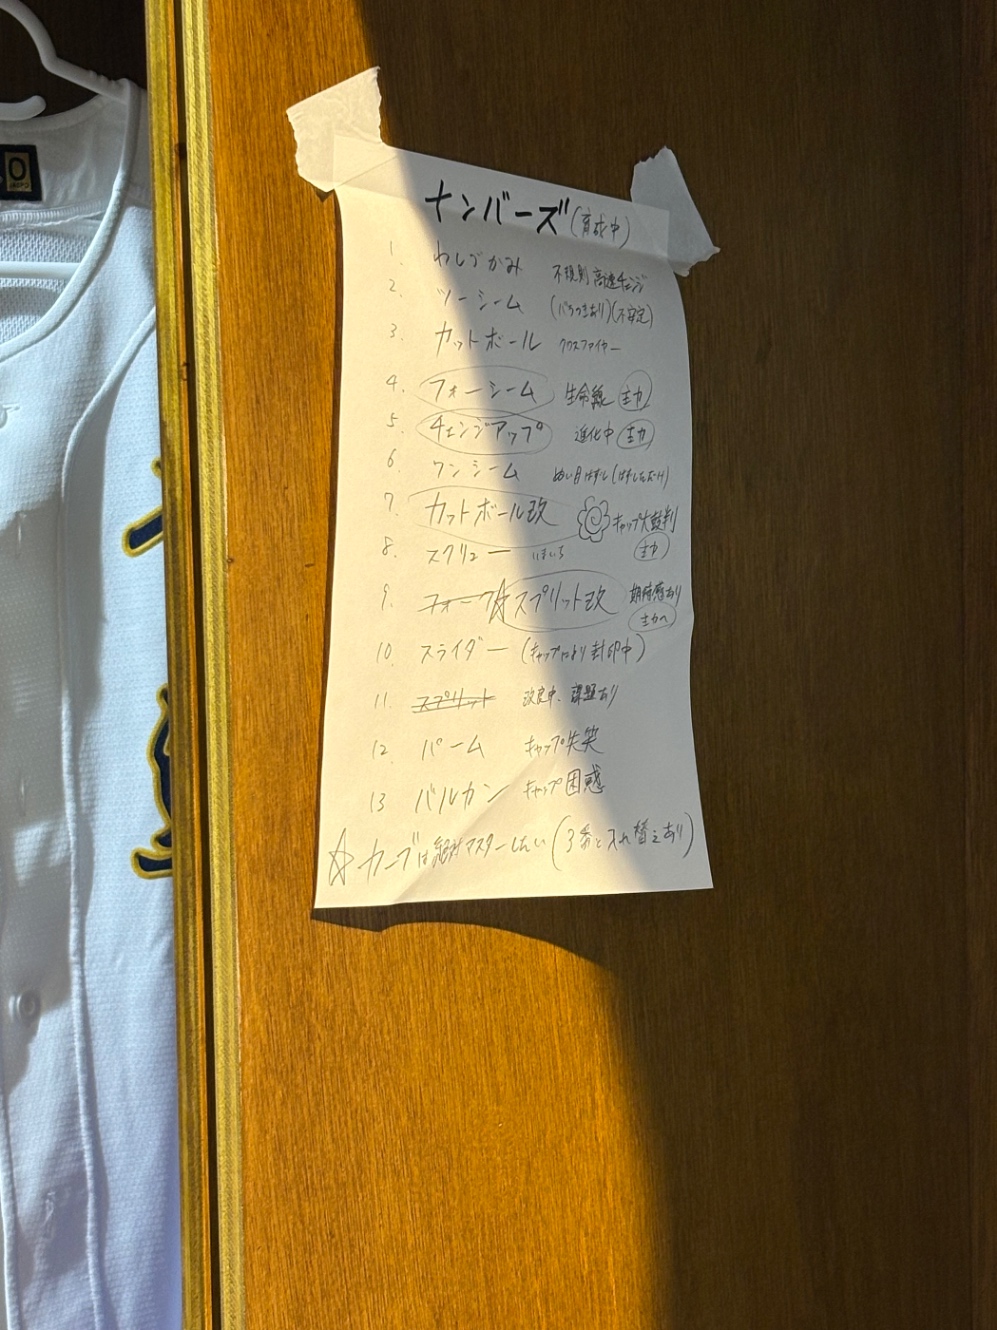 ナンバーズ(育成中)
1. わしづかみ 不規則高速チェンジ
2. ツーシーム (バラつきあり)(不安定)
3. カットボール クロスファイヤー
4. フォーシーム 生命線 主力
5. チェンジアップ 進化中 主力
6. ワンシーム ぬい目はずし(はずしただけ)
7. カットボール改 キャップ太鼓判
主力
8. スクリュー
9. フォーク☆スプリット改 期待感あり
主力へ
10. スライダー (キャップにより封印中)
11. スプリット 改良中、課題あり
12. パーム キャップ失笑
13 バルカン キャップ困惑
☆カーブは絶対マスターしたい(3番と入れ替えあり)